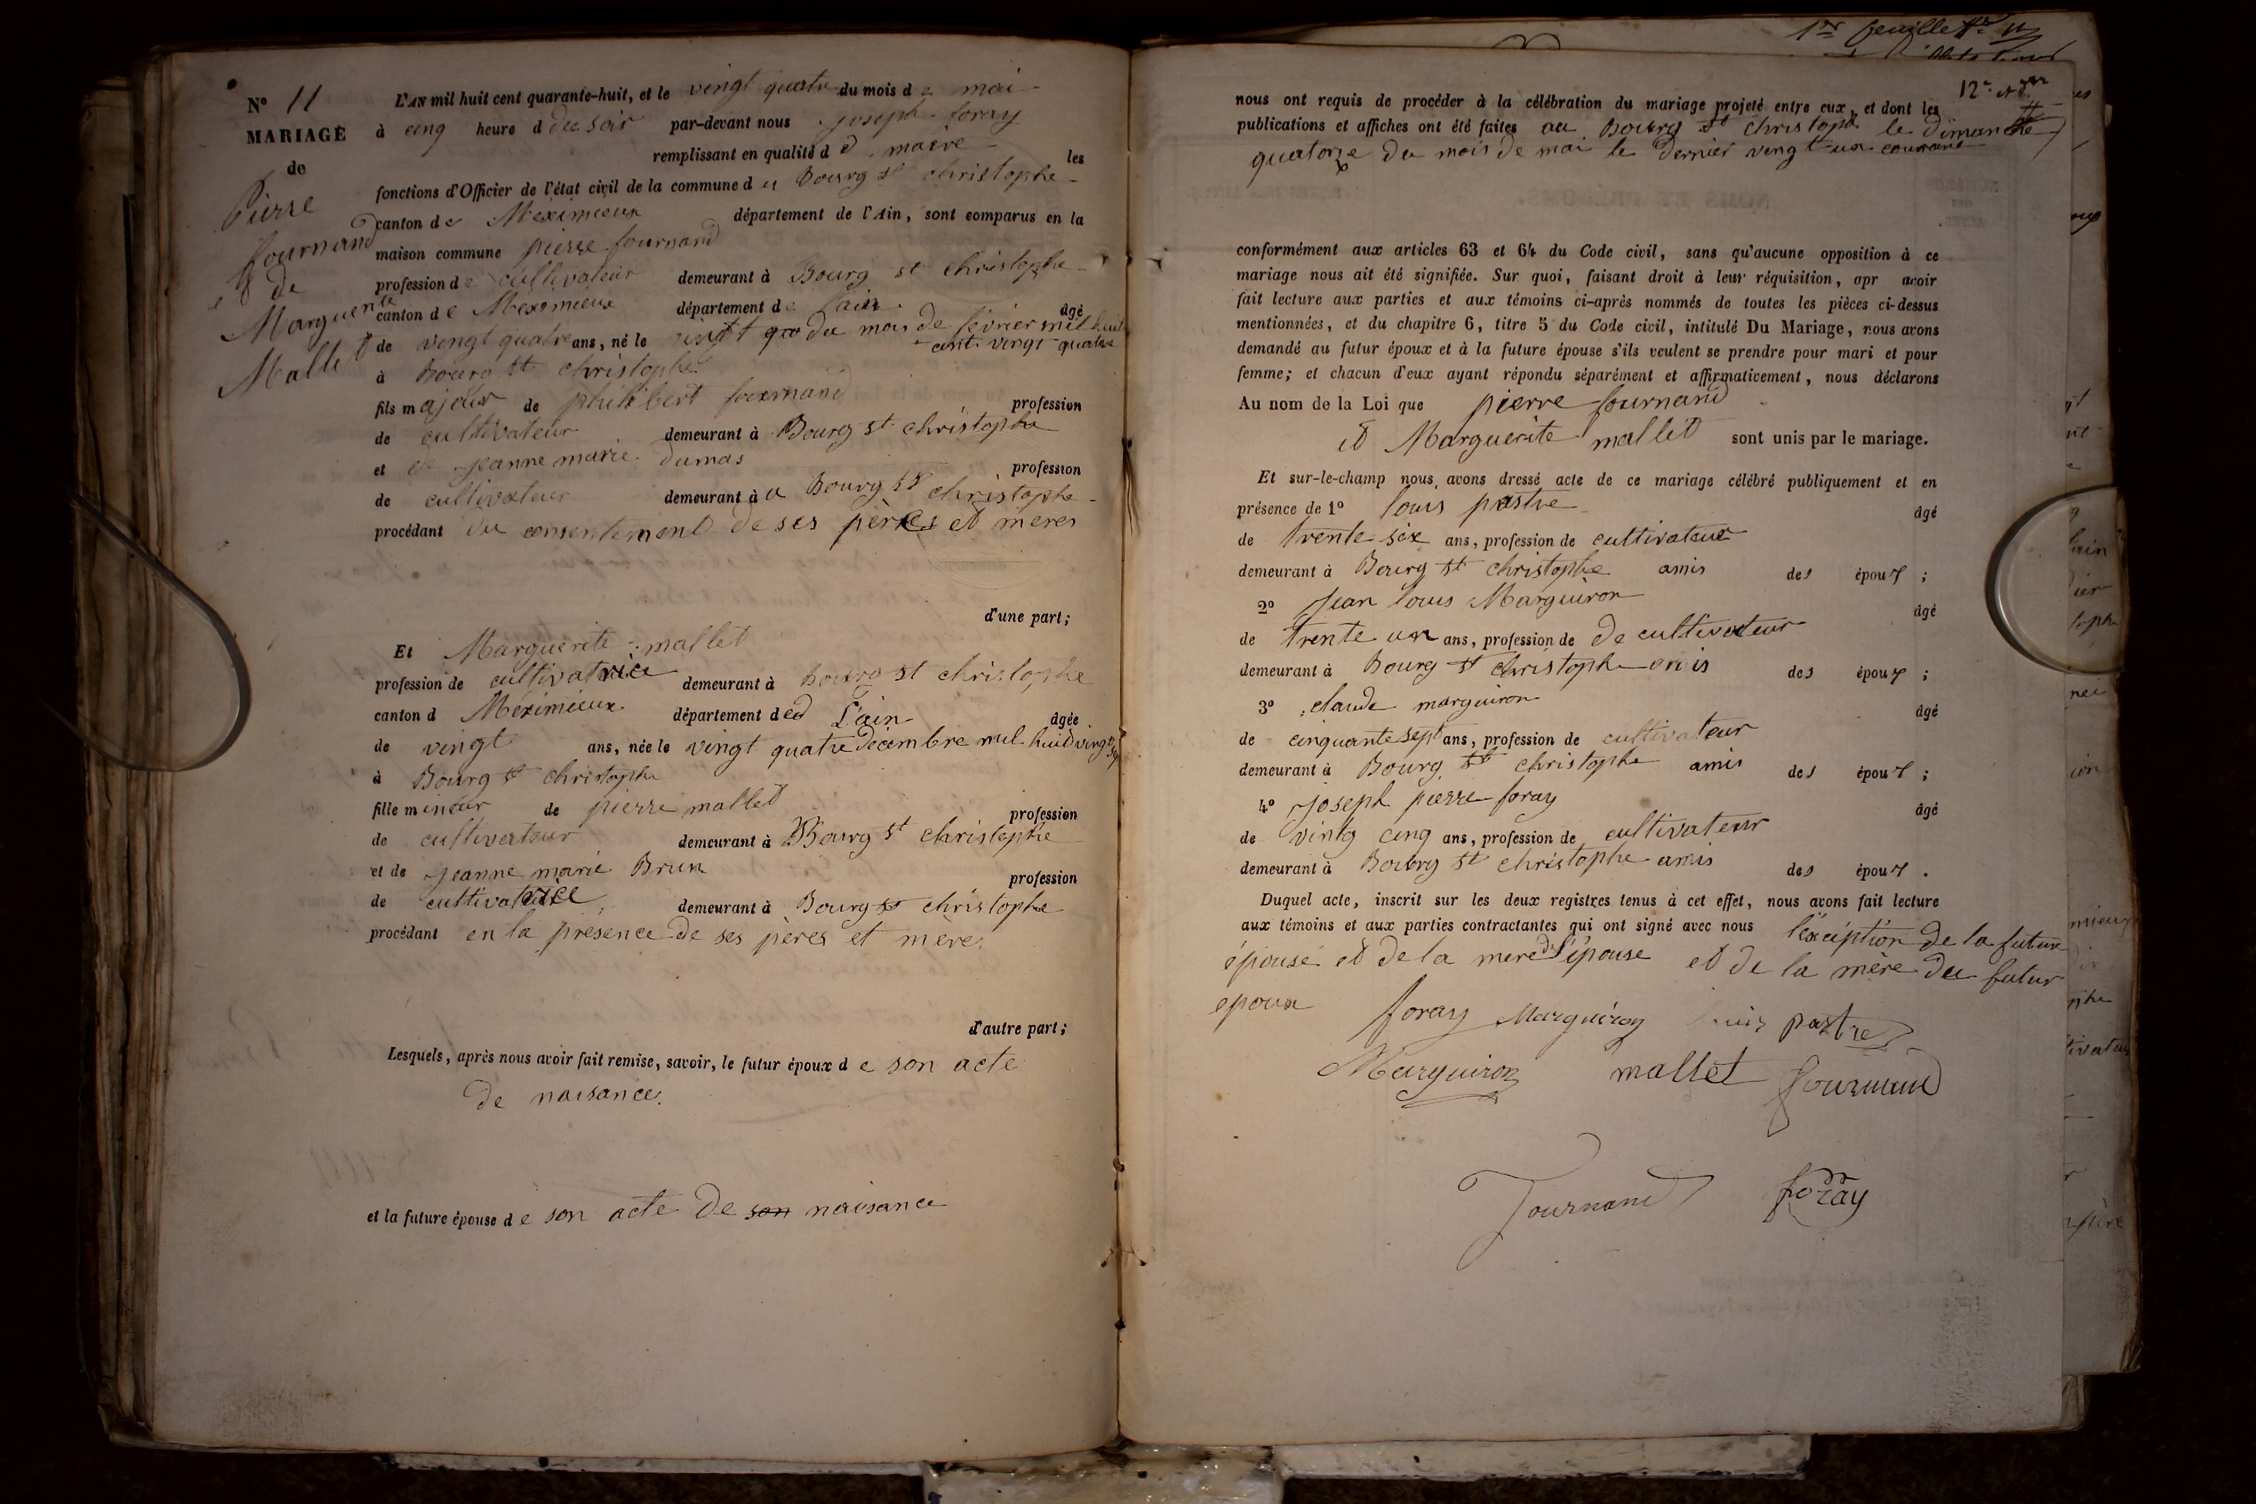 N° 11
MARIAGE
de
Pierre
fournand
et de
Marguerite
Mallet
L'AN mil huit cent quarante-huit, et le vingt quatre du mois de mai
à cinq heure d du soir par-devant nous joseph foray
remplissant en qualité d maire les
fonctions d'Officier de l'état civil de la commune du Bourg st christophe
canton de Méximieux département de l'Ain, sont comparus en la
maison commune pierre fournand
profession de cultivateur demeurant à Bourg st christophe
canton de Meximieux département de l'ain âgé
de vingt quatre ans, né le vingt du mois de février mil huit
cent vingt quatre
à Bourg st christophe
fils majeur de philibert fournand profession
de cultivateur demeurant à Bourg st christophe
et de jeanne marie dumas profession
de cultivateur demeurant à a Bourg st christophe
procédant du consentement de ses pères et mères
d'une part;
Et Marguerite mallet
profession de cultivatrice demeurant à Bourg st christophe
canton d Méximieux département de L'ain âgée
de vingt ans, née le vingt quatre décembre mil huit vingt
à Bourg st christophe
fille mineur de pierre mallet profession
de cultivateur demeurant à Bourg st christophe
et de jeanne marie Brun profession
de cultivatrice demeurant à Bourg st christophe
procédant en la présence de ses pères et mère
d'autre part;
Lesquels, après nous avoir fait remise, savoir, le futur époux de son acte
de naisance.
et la future épouse de son acte de son naisance
1er feuillet
12e et der
nous ont requis de procéder à la célébration du mariage projeté entre eux, et dont les
publications et affiches ont été faites au Bourg st christophe le dimanche
quatorze du mois de mai le dernier vingt un courant
conformément aux articles 63 et 64 du Code civil, sans qu'aucune opposition à ce
mariage nous ait été signifiée. Sur quoi, faisant droit à leur réquisition, apr avoir
fait lecture aux parties et aux témoins ci-après nommés de toutes les pièces ci-dessus
mentionnées, et du chapitre 6, titre 5 du Code civil, intitulé Du Mariage, nous avons
demandé au futur époux et à la future épouse s'ils veulent se prendre pour mari et pour
femme; et chacun d'eux ayant répondu séparément et affirmativement, nous déclarons
Au nom de la Loi que pierre fournand
et Marguerite mallet sont unis par le mariage.
Et sur-le-champ nous avons dressé acte de ce mariage célébré publiquement et en
présence de 1° louis pastre âgé
de trente six ans, profession de cultivateur
demeurant à Bourg st christophe amis des époux ;
2° jean louis Marguiron âgé
de trente un ans, profession de de cultivateur
demeurant à Bourg st christophe amis des époux ;
3° claude marguiron âgé
de cinquante sept ans, profession de cultivateur
demeurant à Bourg st christophe amis des époux ;
4° joseph pierre foray âgé
de vintg cinq ans, profession de cultivateur
demeurant à Bourg st christophe amis des époux .
Duquel acte, inscrit sur les deux registres tenus à cet effet, nous avons fait lecture
aux témoins et aux parties contractantes qui ont signé avec nous l'excéption de la future
épouse et de la mere de l'épouse et de la mère du futur
epoux
foray Marguiron louis pastre
Marguiron mallet fournand
Fournand foray